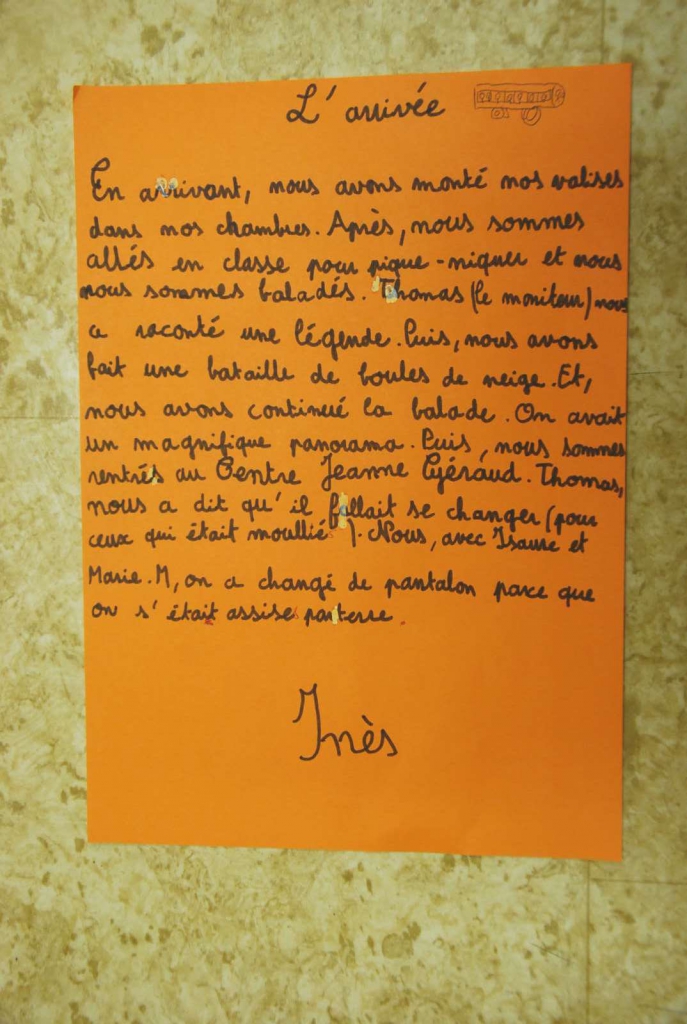 L'arrivée
En arrivant, nous avons monté nos valises
dans nos chambres. Après, nous sommes
allés en classe pour pique-niquer et nous
nous sommes baladés. Thomas (le moniteur) nous
a raconté une légende. Puis, nous avons
fait une bataille de boules de neige. Et,
nous avons continué la balade. On avait
un magnifique panorama. Puis, nous sommes
rentrés au Centre Jeanne Géraud. Thomas,
nous a dit qu'il fallait se changer (pour
ceux qui était moullié ). Nous, avec Isaure et
Marie.M, on a changé de pantalon parce que
on s'était assise parterre.
Inès